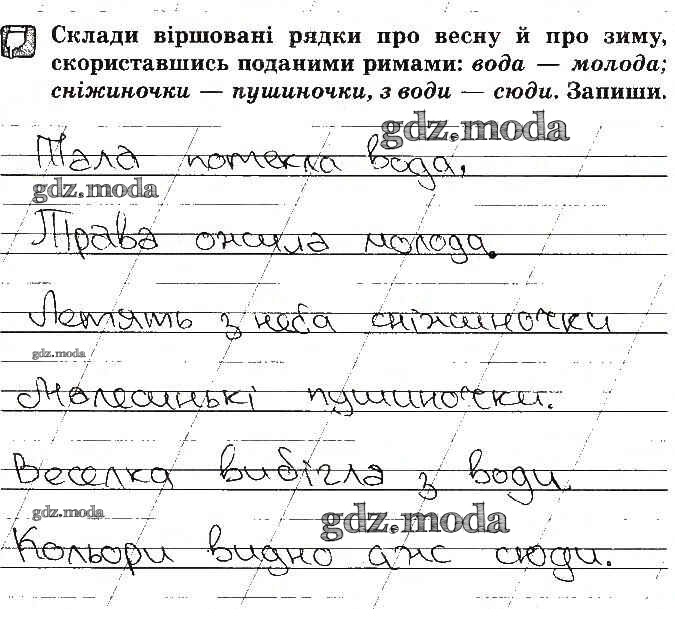 Склади віршовані рядки про весну й про зиму,
скориставшись поданими римами: вода — молода;
сніжиночки — пушиночки, з води — сюди. Запиши.
gdz.moda
Тала потекла вода,
gdz.moda
Трава ожила молода.
Летять з неба сніжиночки
gdz.moda
Малесинькі пушиночки.
Веселка вибігла з води
gdz.moda
gdz.moda
Кольори видно аж сюди.